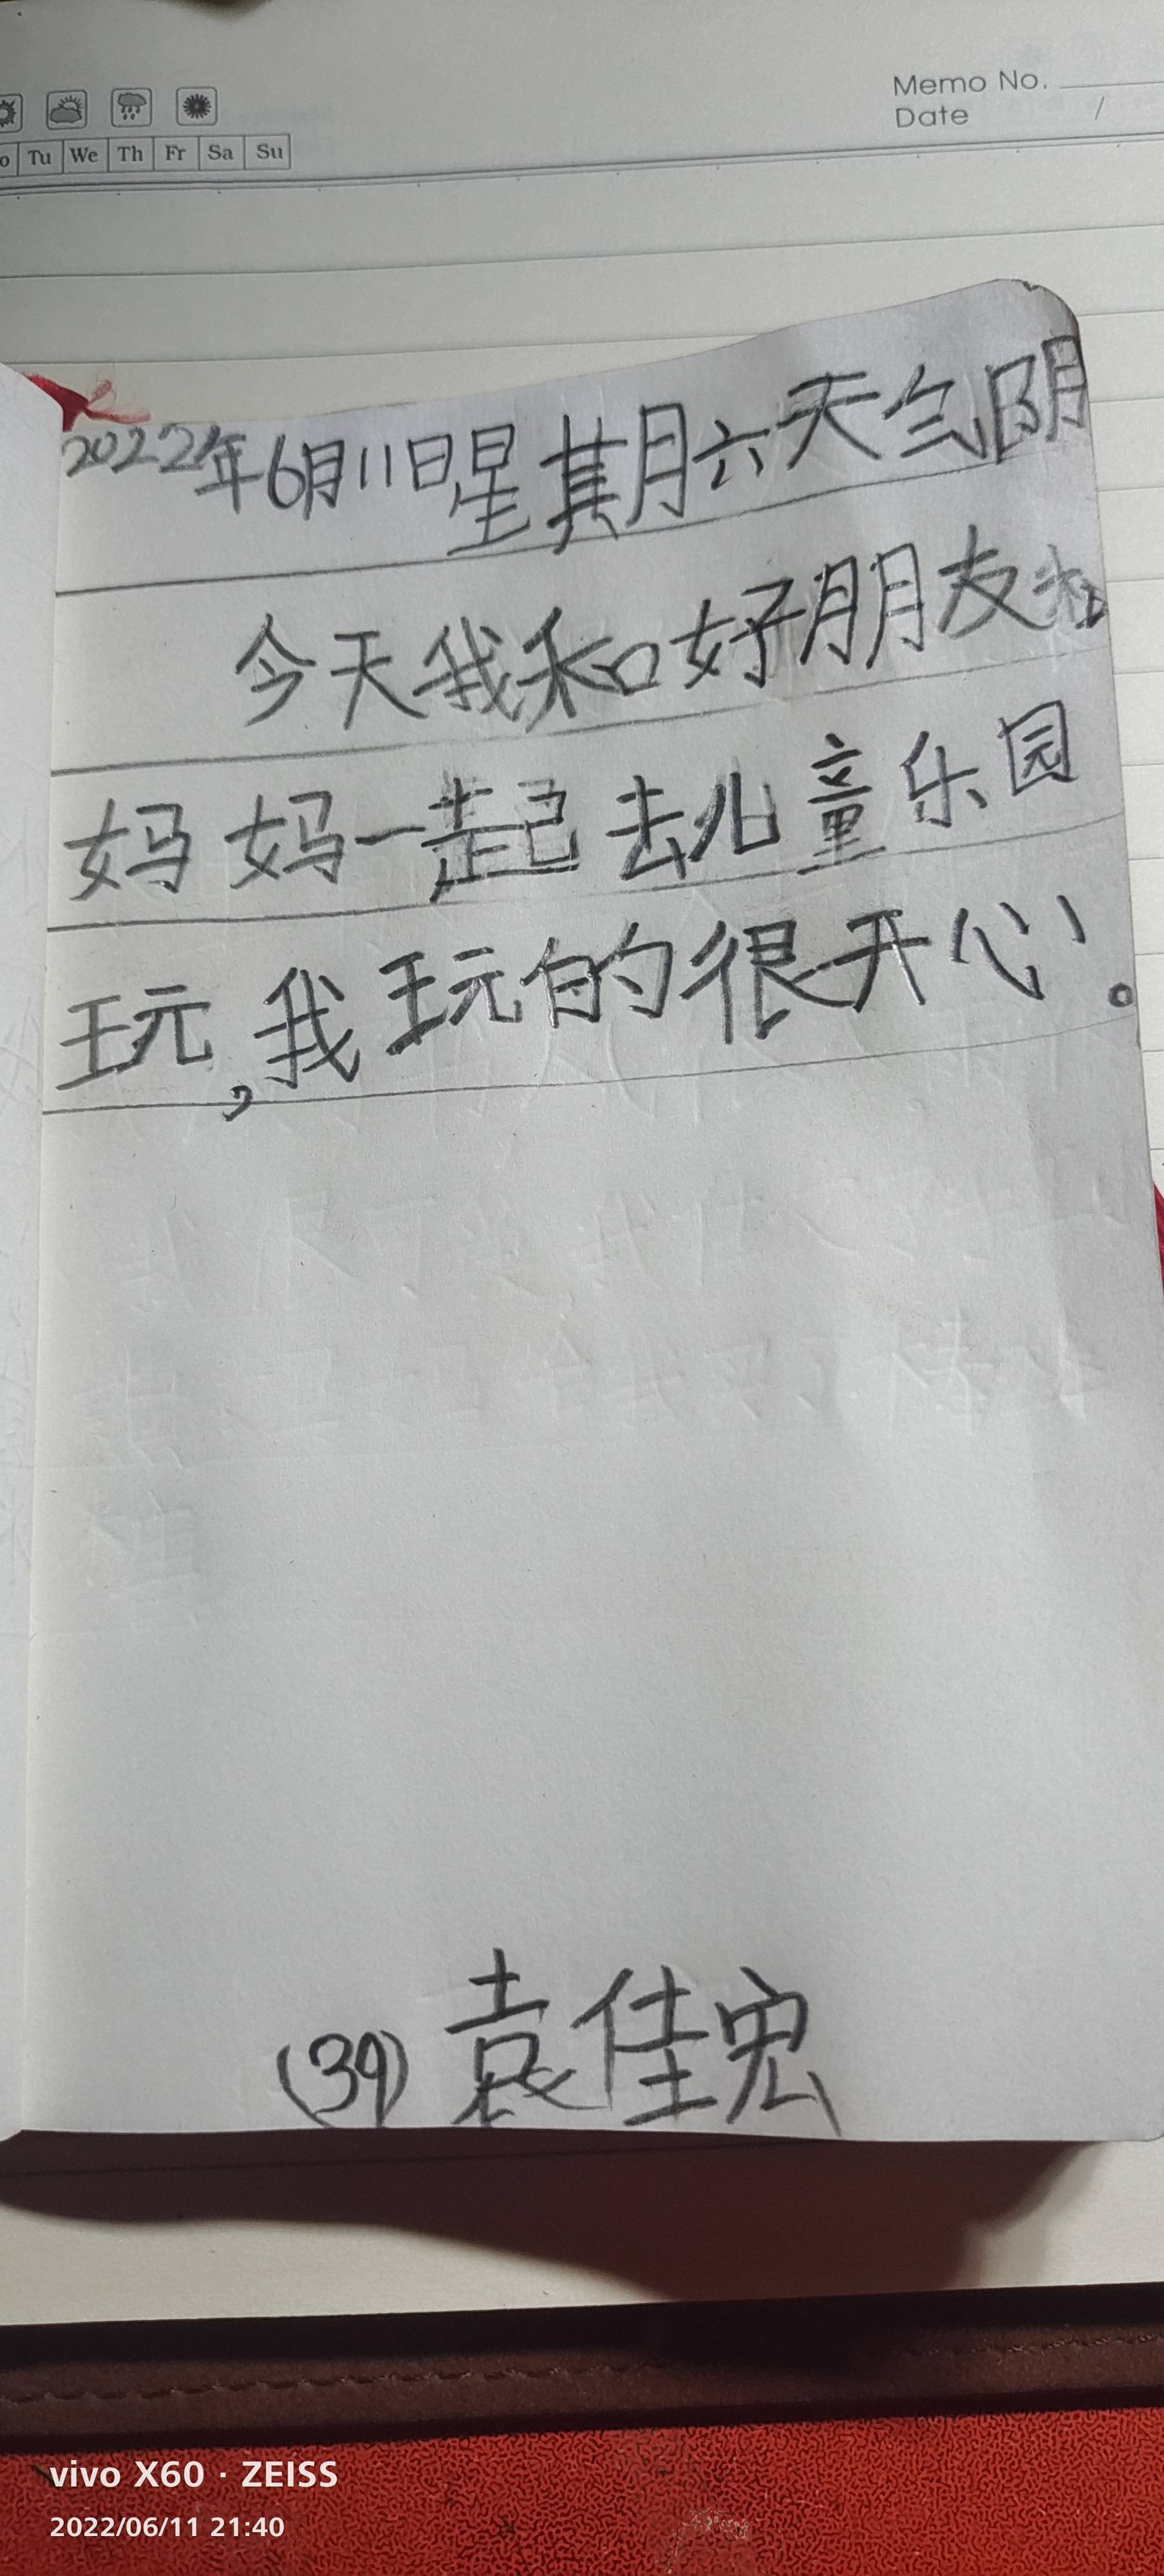 Memo No.
Date /
o Tu We Th Fr Sa Su
2022年6月11日星期六天气阴
今天我和好朋友和
妈妈一起去儿童乐园
玩,我玩的很开心。
(39) 袁佳宏
vivo X60 · ZEISS
2022/06/11 21:40